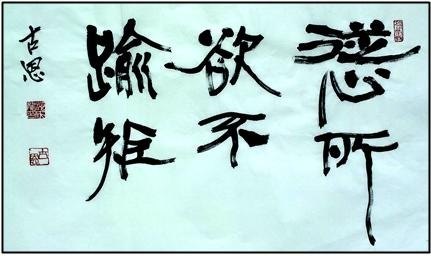 從心所
欲不
踰矩
古思